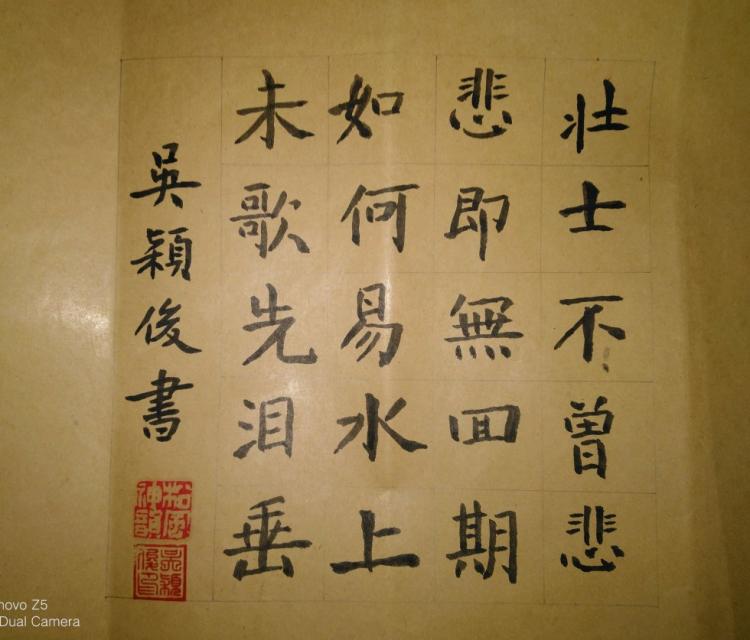 壮士不曾悲
悲即無回期
如何易水上
未歌先泪垂
吳穎俊書
松風神韻
novo Z5
Dual Camera